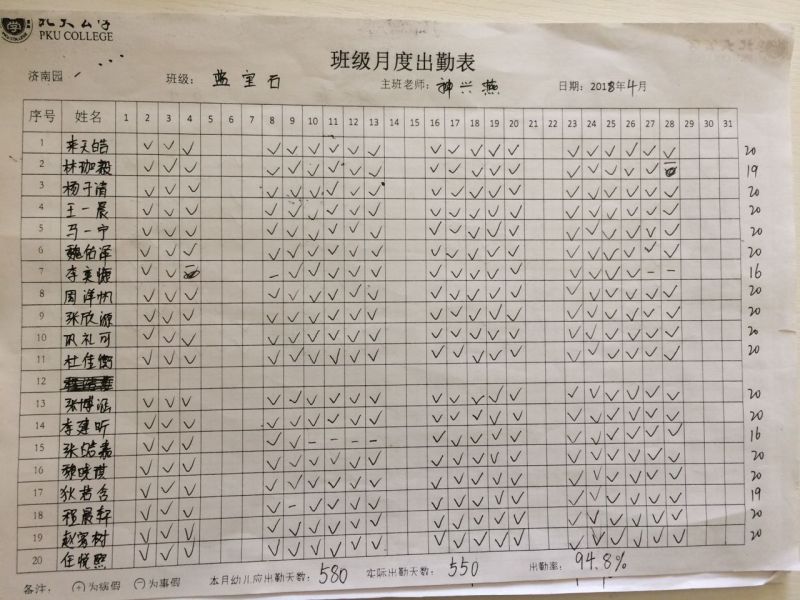 PKU COLLEGE
班级月度出勤表
济南园 班级: 蓝宝石 主班老师: 神兴燕 日期: 2018年4月
序号 姓名 1 2 3 4 5 6 7 8 9 10 11 12 13 14 15 16 17 18 19 20 21 22 23 24 25 26 27 28 29 30 31
1 李天皓 ✓ ✓ ✓ ✓ ✓ ✓ ✓ ✓ ✓ ✓ ✓ ✓ ✓ ✓ ✓ ✓ ✓ ✓ ✓ ✓ 20
2 林珈毅 ✓ ✓ ✓ ✓ ✓ ✓ ✓ ✓ ✓ ✓ ✓ ✓ ✓ ✓ ✓ ✓ ✓ ✓ ✓ 19
3 杨子清 ✓ ✓ ✓ ✓ ✓ ✓ ✓ ✓ ✓ ✓ ✓ ✓ ✓ ✓ ✓ ✓ ✓ ✓ ✓ ✓ 20
4 王一晨 ✓ ✓ ✓ ✓ ✓ ✓ ✓ ✓ ✓ ✓ ✓ ✓ ✓ ✓ ✓ ✓ ✓ ✓ ✓ ✓ 20
5 马一宁 ✓ ✓ ✓ ✓ ✓ ✓ ✓ ✓ ✓ ✓ ✓ ✓ ✓ ✓ ✓ ✓ ✓ ✓ ✓ ✓ 20
6 魏佑泽 ✓ ✓ ✓ ✓ ✓ ✓ ✓ ✓ ✓ ✓ ✓ ✓ ✓ ✓ ✓ ✓ ✓ ✓ ✓ ✓ 20
7 李奕 ✓ ✓ – ✓ ✓ ✓ ✓ ✓ ✓ ✓ ✓ ✓ ✓ ✓ ✓ ✓ ✓ – – 16
8 周洋帆 ✓ ✓ ✓ ✓ ✓ ✓ ✓ ✓ ✓ ✓ ✓ ✓ ✓ ✓ ✓ ✓ ✓ ✓ ✓ ✓ 20
9 张欣源 ✓ ✓ ✓ ✓ ✓ ✓ ✓ ✓ ✓ ✓ ✓ ✓ ✓ ✓ ✓ ✓ ✓ ✓ ✓ ✓ 20
10 巩礼可 ✓ ✓ ✓ ✓ ✓ ✓ ✓ ✓ ✓ ✓ ✓ ✓ ✓ ✓ ✓ ✓ ✓ ✓ ✓ ✓ 20
11 杜佳衡 ✓ ✓ ✓ ✓ ✓ ✓ ✓ ✓ ✓ ✓ ✓ ✓ ✓ ✓ ✓ ✓ ✓ ✓ ✓ ✓ 20
12
13 张博涵 ✓ ✓ ✓ ✓ ✓ ✓ ✓ ✓ ✓ ✓ ✓ ✓ ✓ ✓ ✓ ✓ ✓ ✓ ✓ ✓ 20
14 李建昕 ✓ ✓ ✓ ✓ ✓ ✓ ✓ ✓ ✓ ✓ ✓ ✓ ✓ ✓ ✓ ✓ ✓ ✓ ✓ ✓ 20
15 张皓嘉 ✓ ✓ ✓ ✓ ✓ – – – – ✓ ✓ ✓ ✓ ✓ ✓ ✓ ✓ ✓ ✓ ✓ 16
16 魏晓琪 ✓ ✓ ✓ ✓ ✓ ✓ ✓ ✓ ✓ ✓ ✓ ✓ ✓ ✓ ✓ ✓ ✓ ✓ ✓ ✓ 20
17 狄若含 ✓ ✓ ✓ ✓ ✓ ✓ ✓ ✓ ✓ ✓ ✓ ✓ ✓ ✓ ✓ ✓ ✓ ✓ ✓ ✓ 20
18 程晨轩 ✓ ✓ ✓ ✓ – ✓ ✓ ✓ ✓ ✓ ✓ ✓ ✓ ✓ ✓ ✓ ✓ ✓ ✓ ✓ 19
19 赵容树 ✓ ✓ ✓ ✓ ✓ ✓ ✓ ✓ ✓ ✓ ✓ ✓ ✓ ✓ ✓ ✓ ✓ ✓ ✓ ✓ 20
20 任晓熙 ✓ ✓ ✓ ✓ ✓ ✓ ✓ ✓ ✓ ✓ ✓ ✓ ✓ ✓ ✓ ✓ ✓ ✓ ✓ ✓ 20
备注: ⊕为病假 ⊖为事假 本月幼儿应出勤天数: 580 实际出勤天数: 550 出勤率: 94.8%